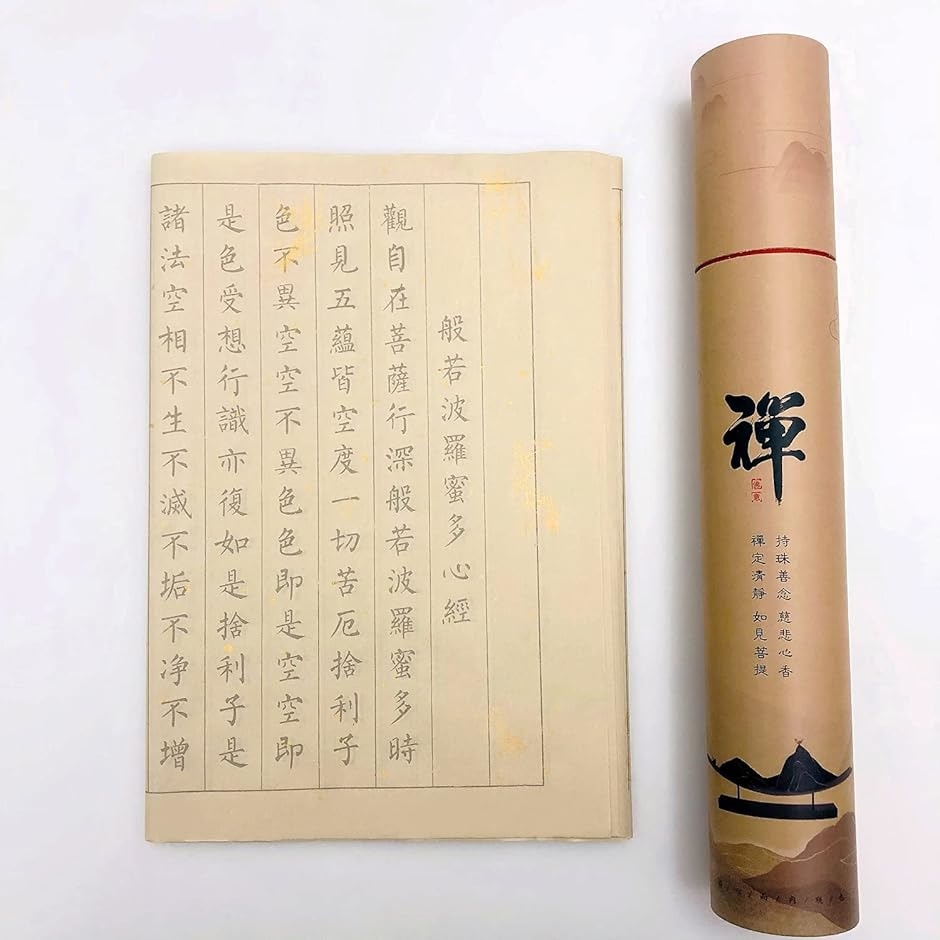 般若波羅蜜多心經
觀自在菩薩行深般若波羅蜜多時
照見五蘊皆空度一切苦厄捨利子
色不異空空不異色色即是空空即
是色受想行識亦復如是捨利子是
諸法空相不生不滅不垢不净不增
禪
持珠善念 慈悲心香
禪定清靜 如見菩提